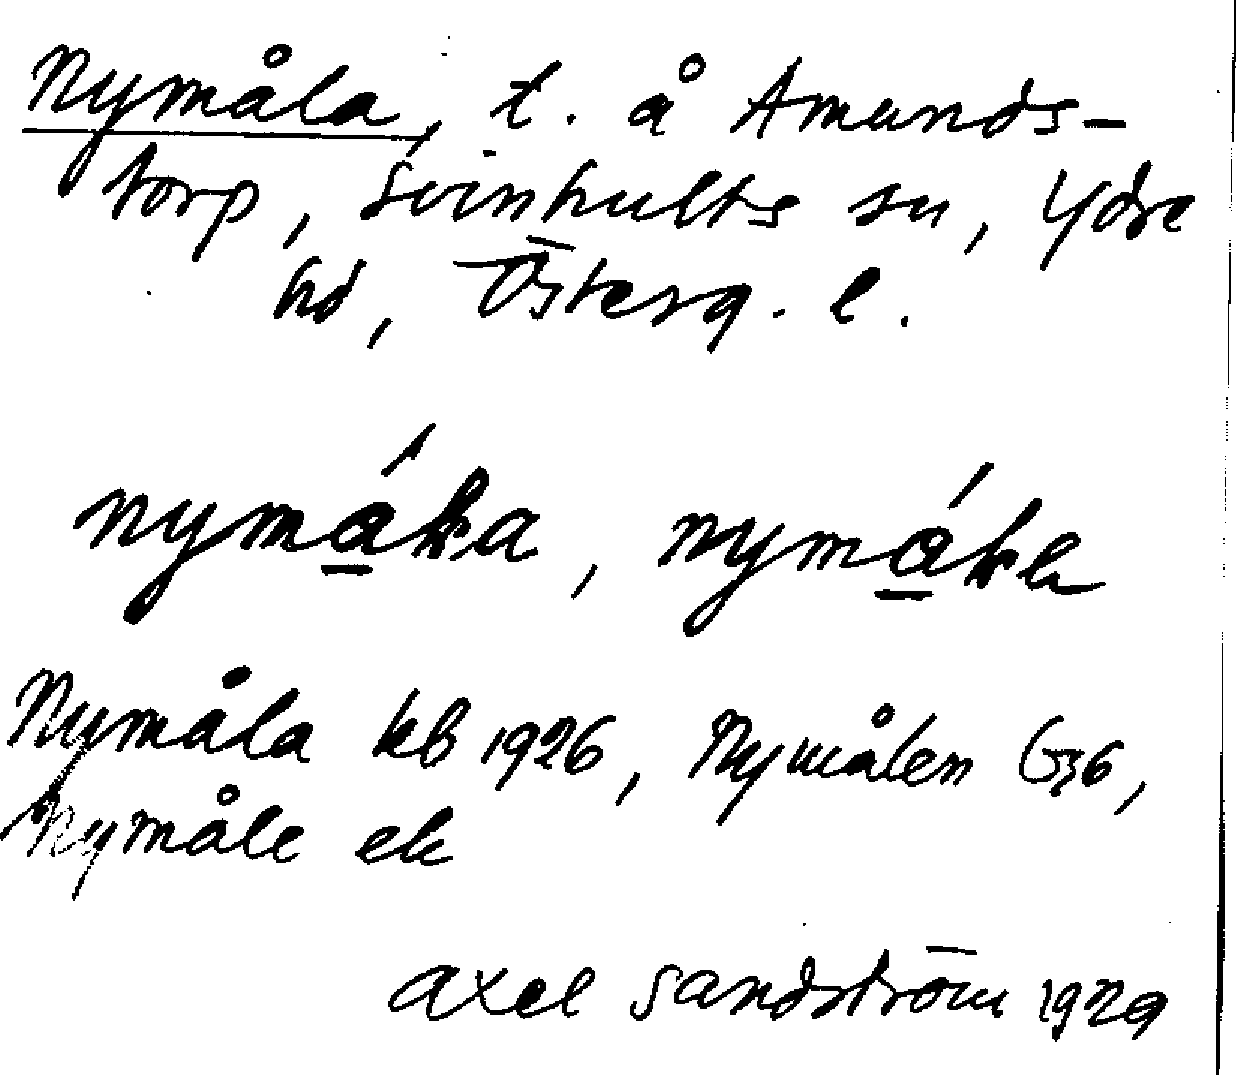 Nymåla, t. å Amunds-
torp, Svinhults sn, Ydre
hd, Österg. l.
nymáka, nymáke
Nymåla kb 1926, Nymålen G36,
Nymåle ek
Axel Sandström 1929